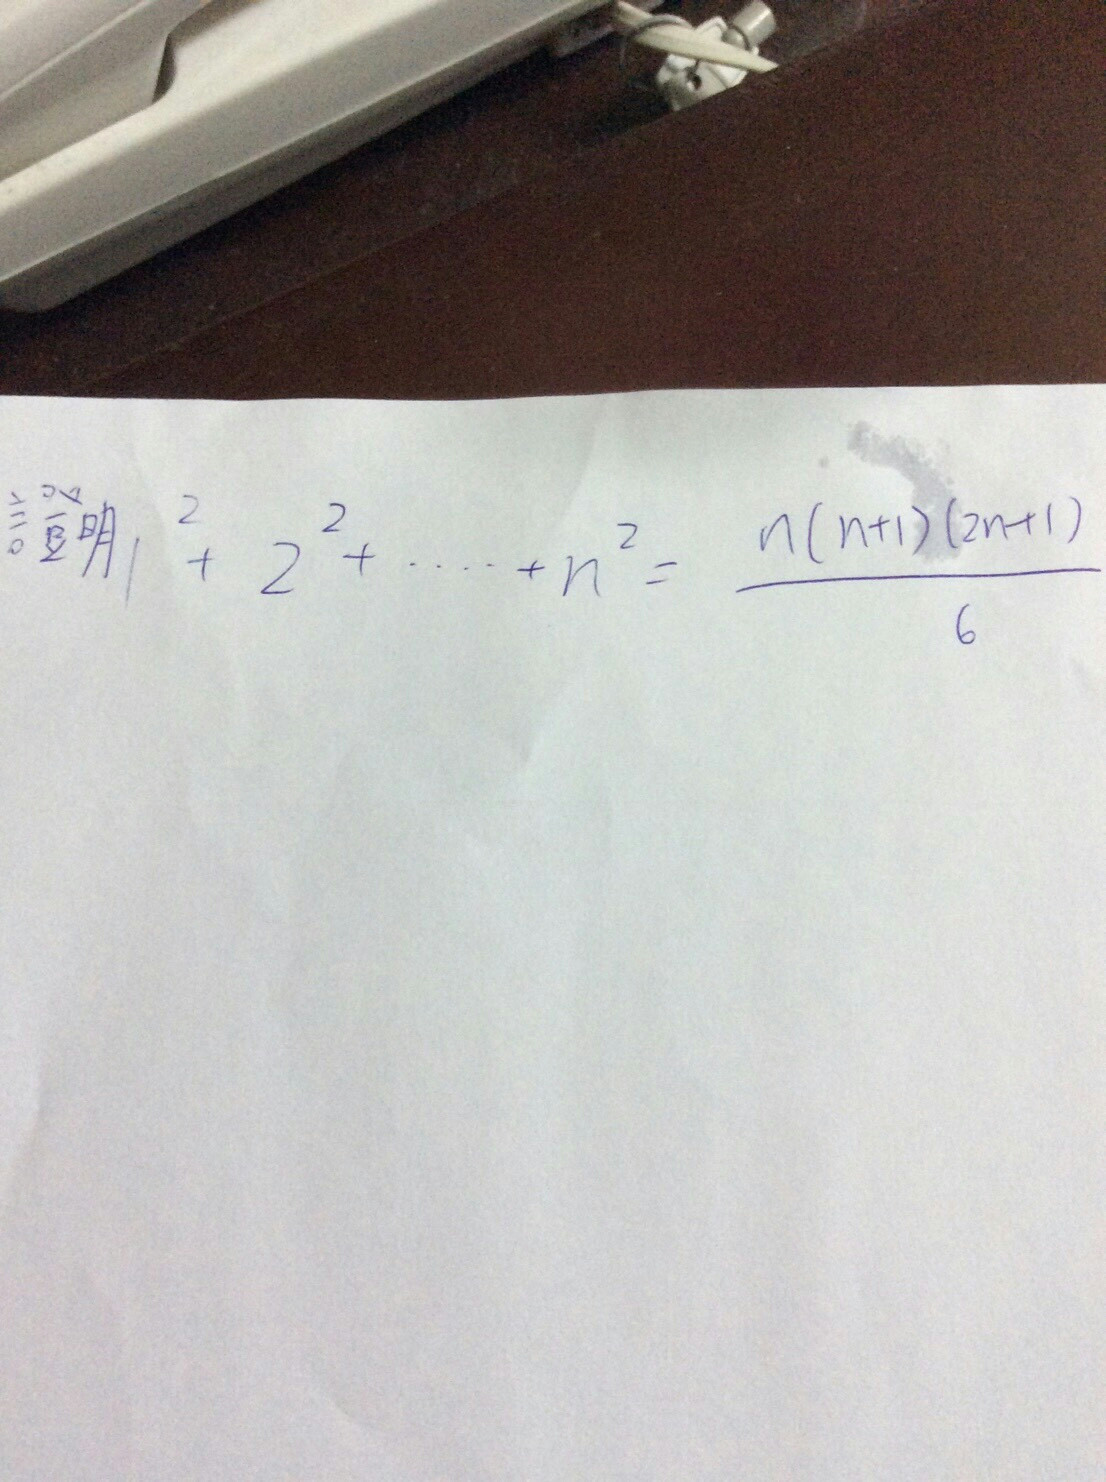 證明 1² + 2² + ····· + n² = n(n+1)(2n+1) / 6